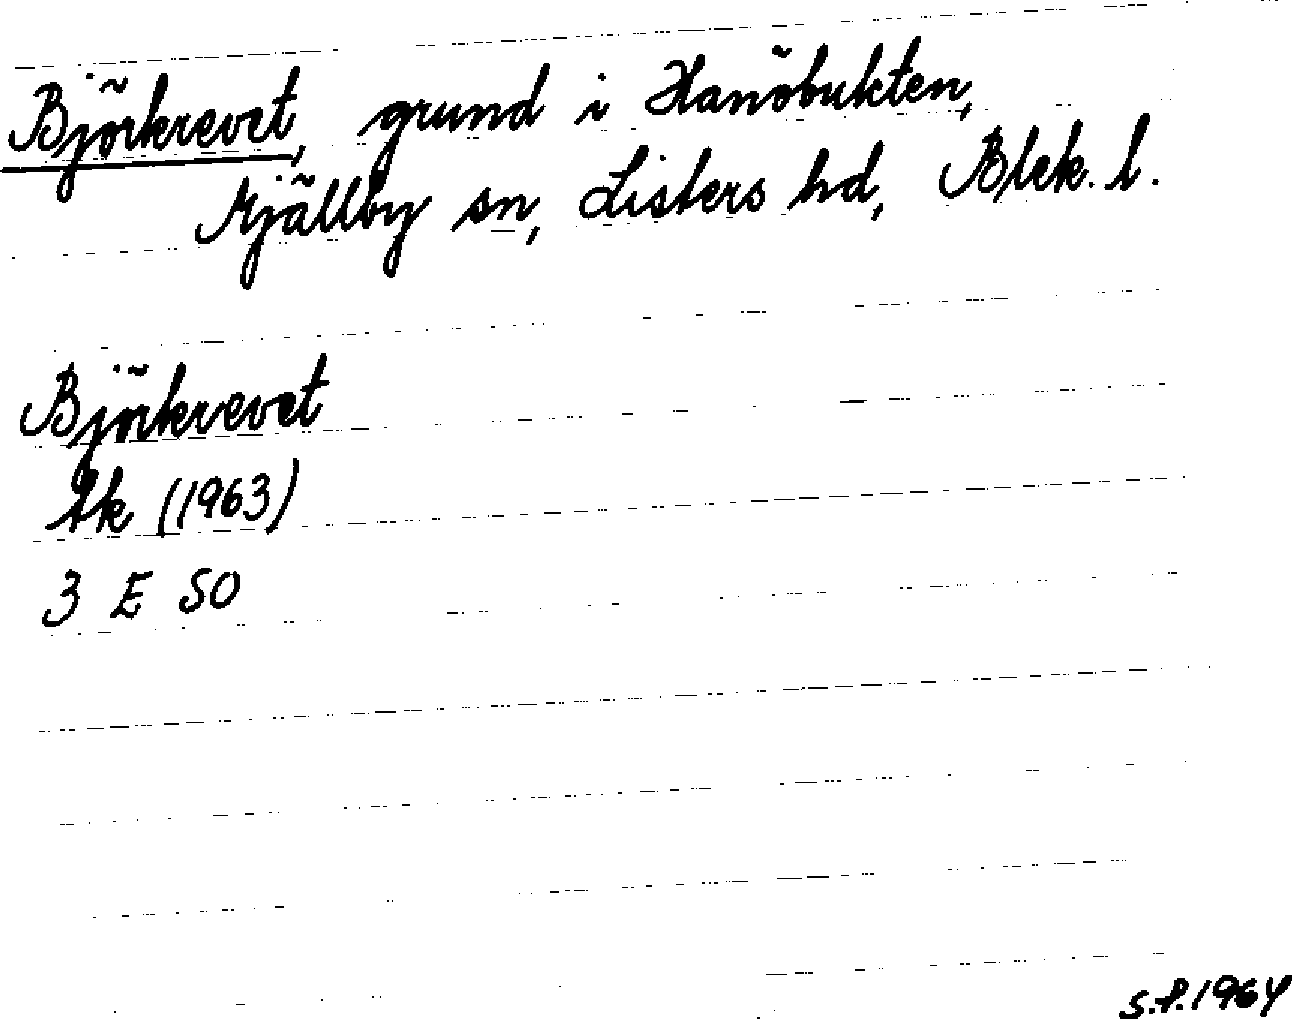 Björkrevet, grund i Hanöbukten,
Mjällby sn, Listers hd, Blek. l.
Björkrevet
Ak (1963)
3 E SO
S.P. 1964